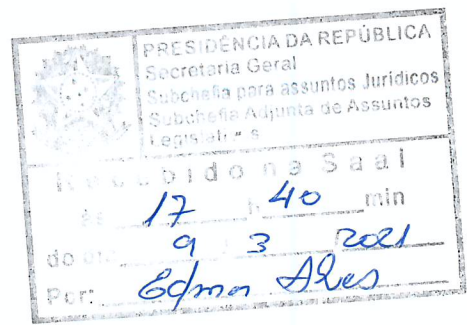 PRESIDÊNCIA DA REPÚBLICA
Secretaria Geral
Subchefia para assuntos Jurídicos
Subchefia Adjunta de Assuntos
Legislati s
Recebido na Saal
às 17 h 40 min
do dia 9 / 3 2021
Por: Edmar Alves